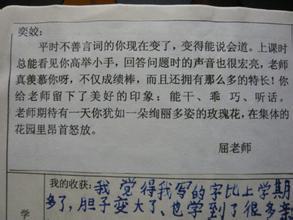 奕姣：
平时不善言词的你现在变了，变得能说会道。上课时
总能看见你高举小手，回答问题时的声音也很宏亮，老师
真羡慕你呀，不仅成绩棒，而且还拥有那么多的特长！你
给老师留下了美好的印象：能干、乖 巧、听话。
老师期待有一天你犹如一朵绚丽多姿的玫瑰花，在集体的
花园里昂首怒放。
屈老师
学
我的收获：我 觉得我写的字比上学期
多了，胆子变大了、也学到了很多